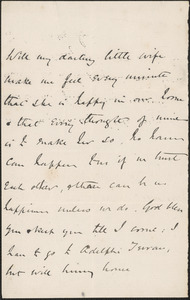 Will my darling little wife
make me feel every minute
that she is happy in our
& that every thought of mine
is to make her so. No harm
can happen to us if we trust
each other, & there can be no
happiness unless we do. God bless
you & keep you till I come; I
have to go to Adelphi Terrace,
but will hurry home